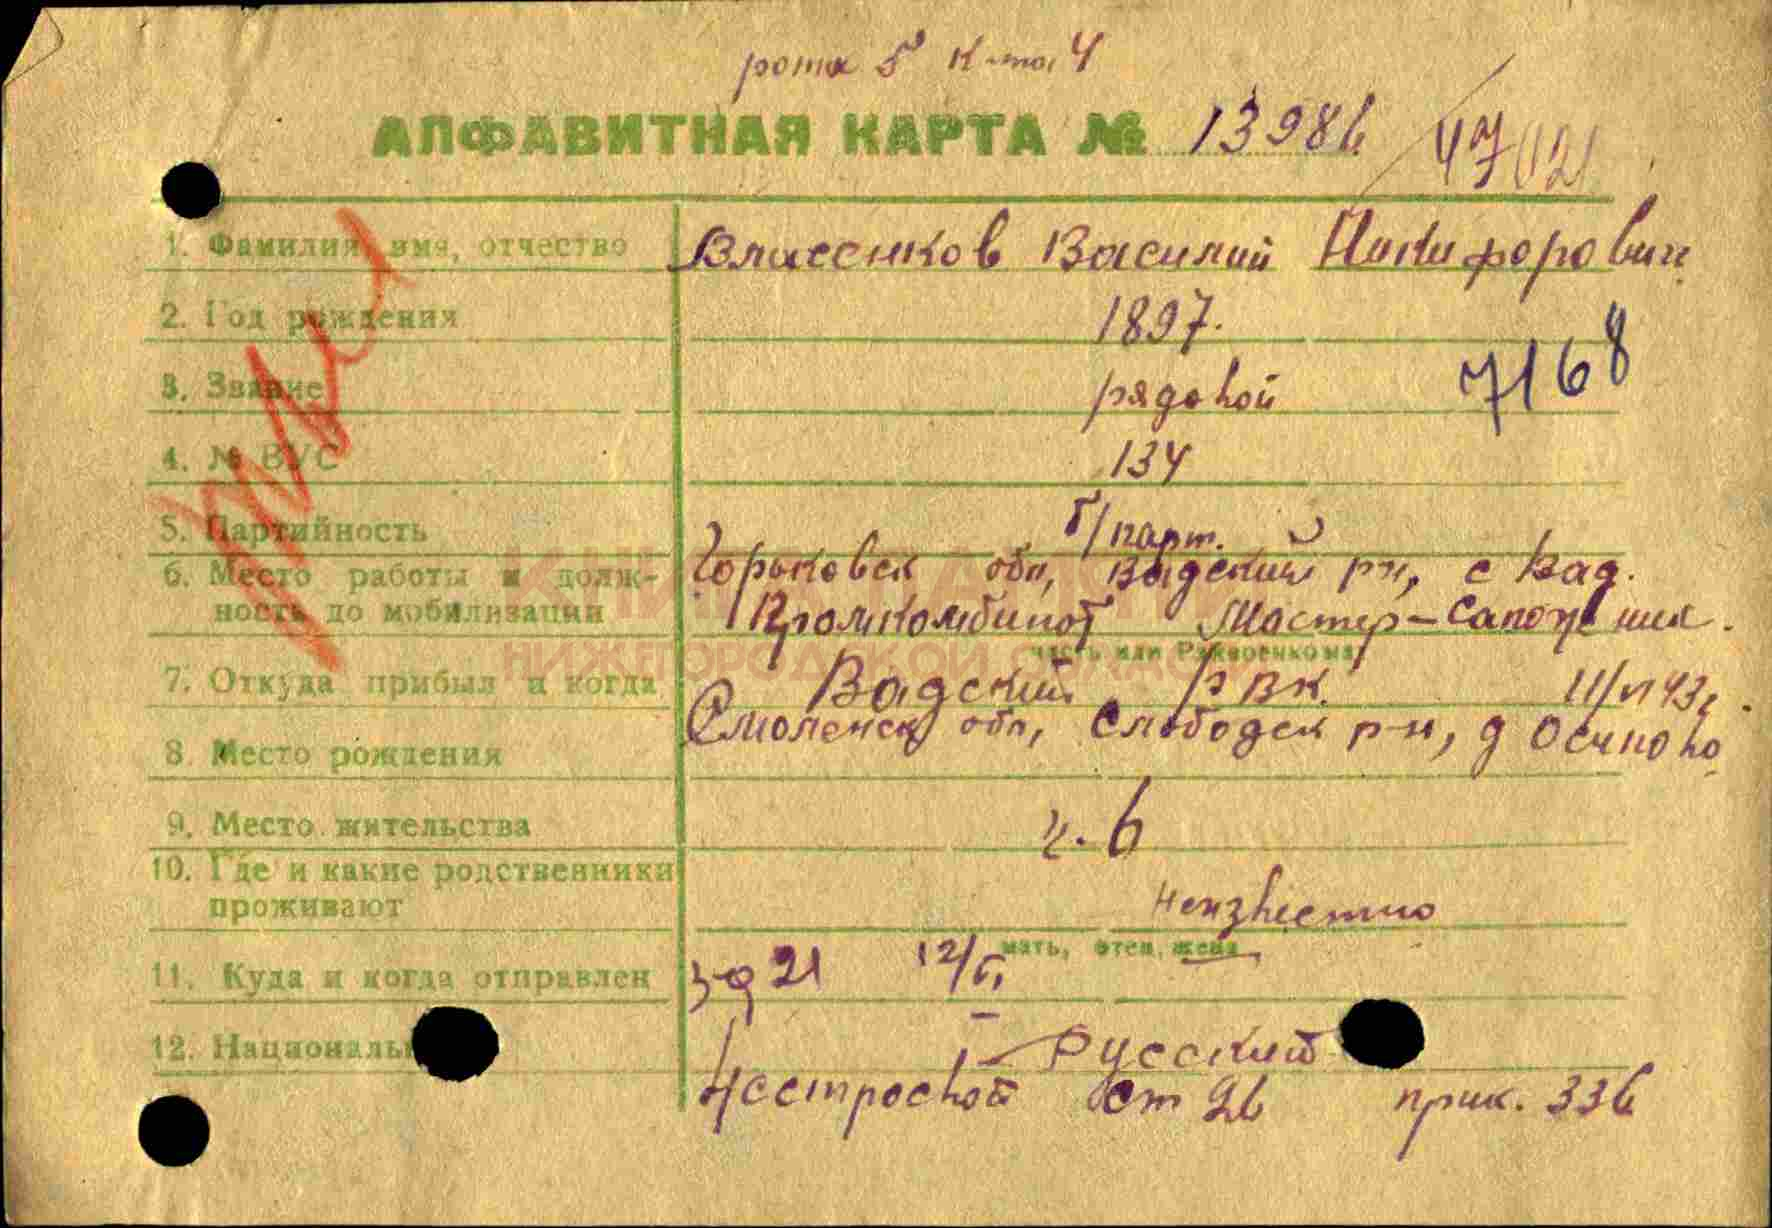 рота 5 к-та 4
АЛФАВИТНАЯ КАРТА № 13986 4702
1. Фамилия, имя, отчество Власенков Василий Никифорович
2. Год рождения 1897.
3. Звание рядовой 7168
4. № ВУС 134
5. Партийность б/парт.
6. Место работы и долж- Горьковск обл, Вадский рн, с Вад.
ность до мобилизации Промкомбинат Мастер-Сапожник.
часть или Райвоенкомат
7. Откуда прибыл и когда Вадский РВК. 11/VI 43г.
8. Место рождения Смоленск обл, Слободск р-н, д Осипово
9. Место жительства п. 6
10. Где и какие родственники
проживают неизвестно
мать, отец, жена
11. Куда и когда отправлен 21 12/
12. Националь Русский
Нестроевой ст 26 прик. 336
КНИГА ПАМЯТИ
НИЖЕГОРОДСКОЙ ОБЛАСТИ